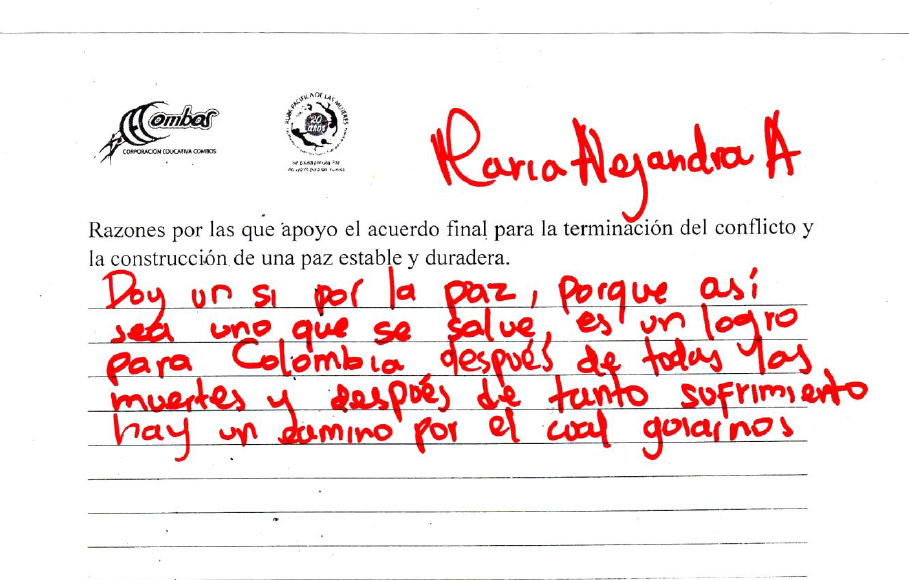 Combos
CORPORACIÓN EDUCATIVA COMBOS
RUTA PACÍFICA DE LAS MUJERES
20 años
Maria Alejandra A
Razones por las que apoyo el acuerdo final para la terminación del conflicto y
la construcción de una paz estable y duradera.
Doy un si por la paz, porque así
sea uno que se salve, es un logro
para Colombia después de todas las
muertes y después de tanto sufrimiento
hay un camino por el cual guiarnos